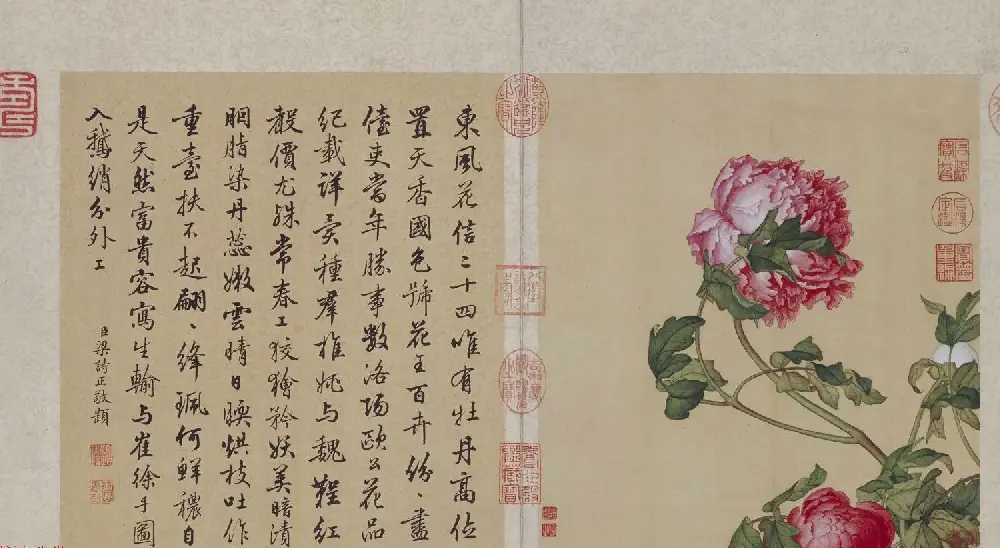 東風花信二十四唯有牡丹高位
置天香國色號花王百卉紛〻盡
僮吏當年勝事數洛陽歐公花品
紀載詳奕種羣推姚与魏鞓紅
縠價尤殊常春工狡獪矜妖美暗漬
胭脂染丹蕊嫩雲晴日暖烘枝吐作
重臺扶不起翩〻絳珮何鮮穠自
是天然富貴容寫生輸与崔徐手圖
入鵝綃分外工
臣梁詩正敬題